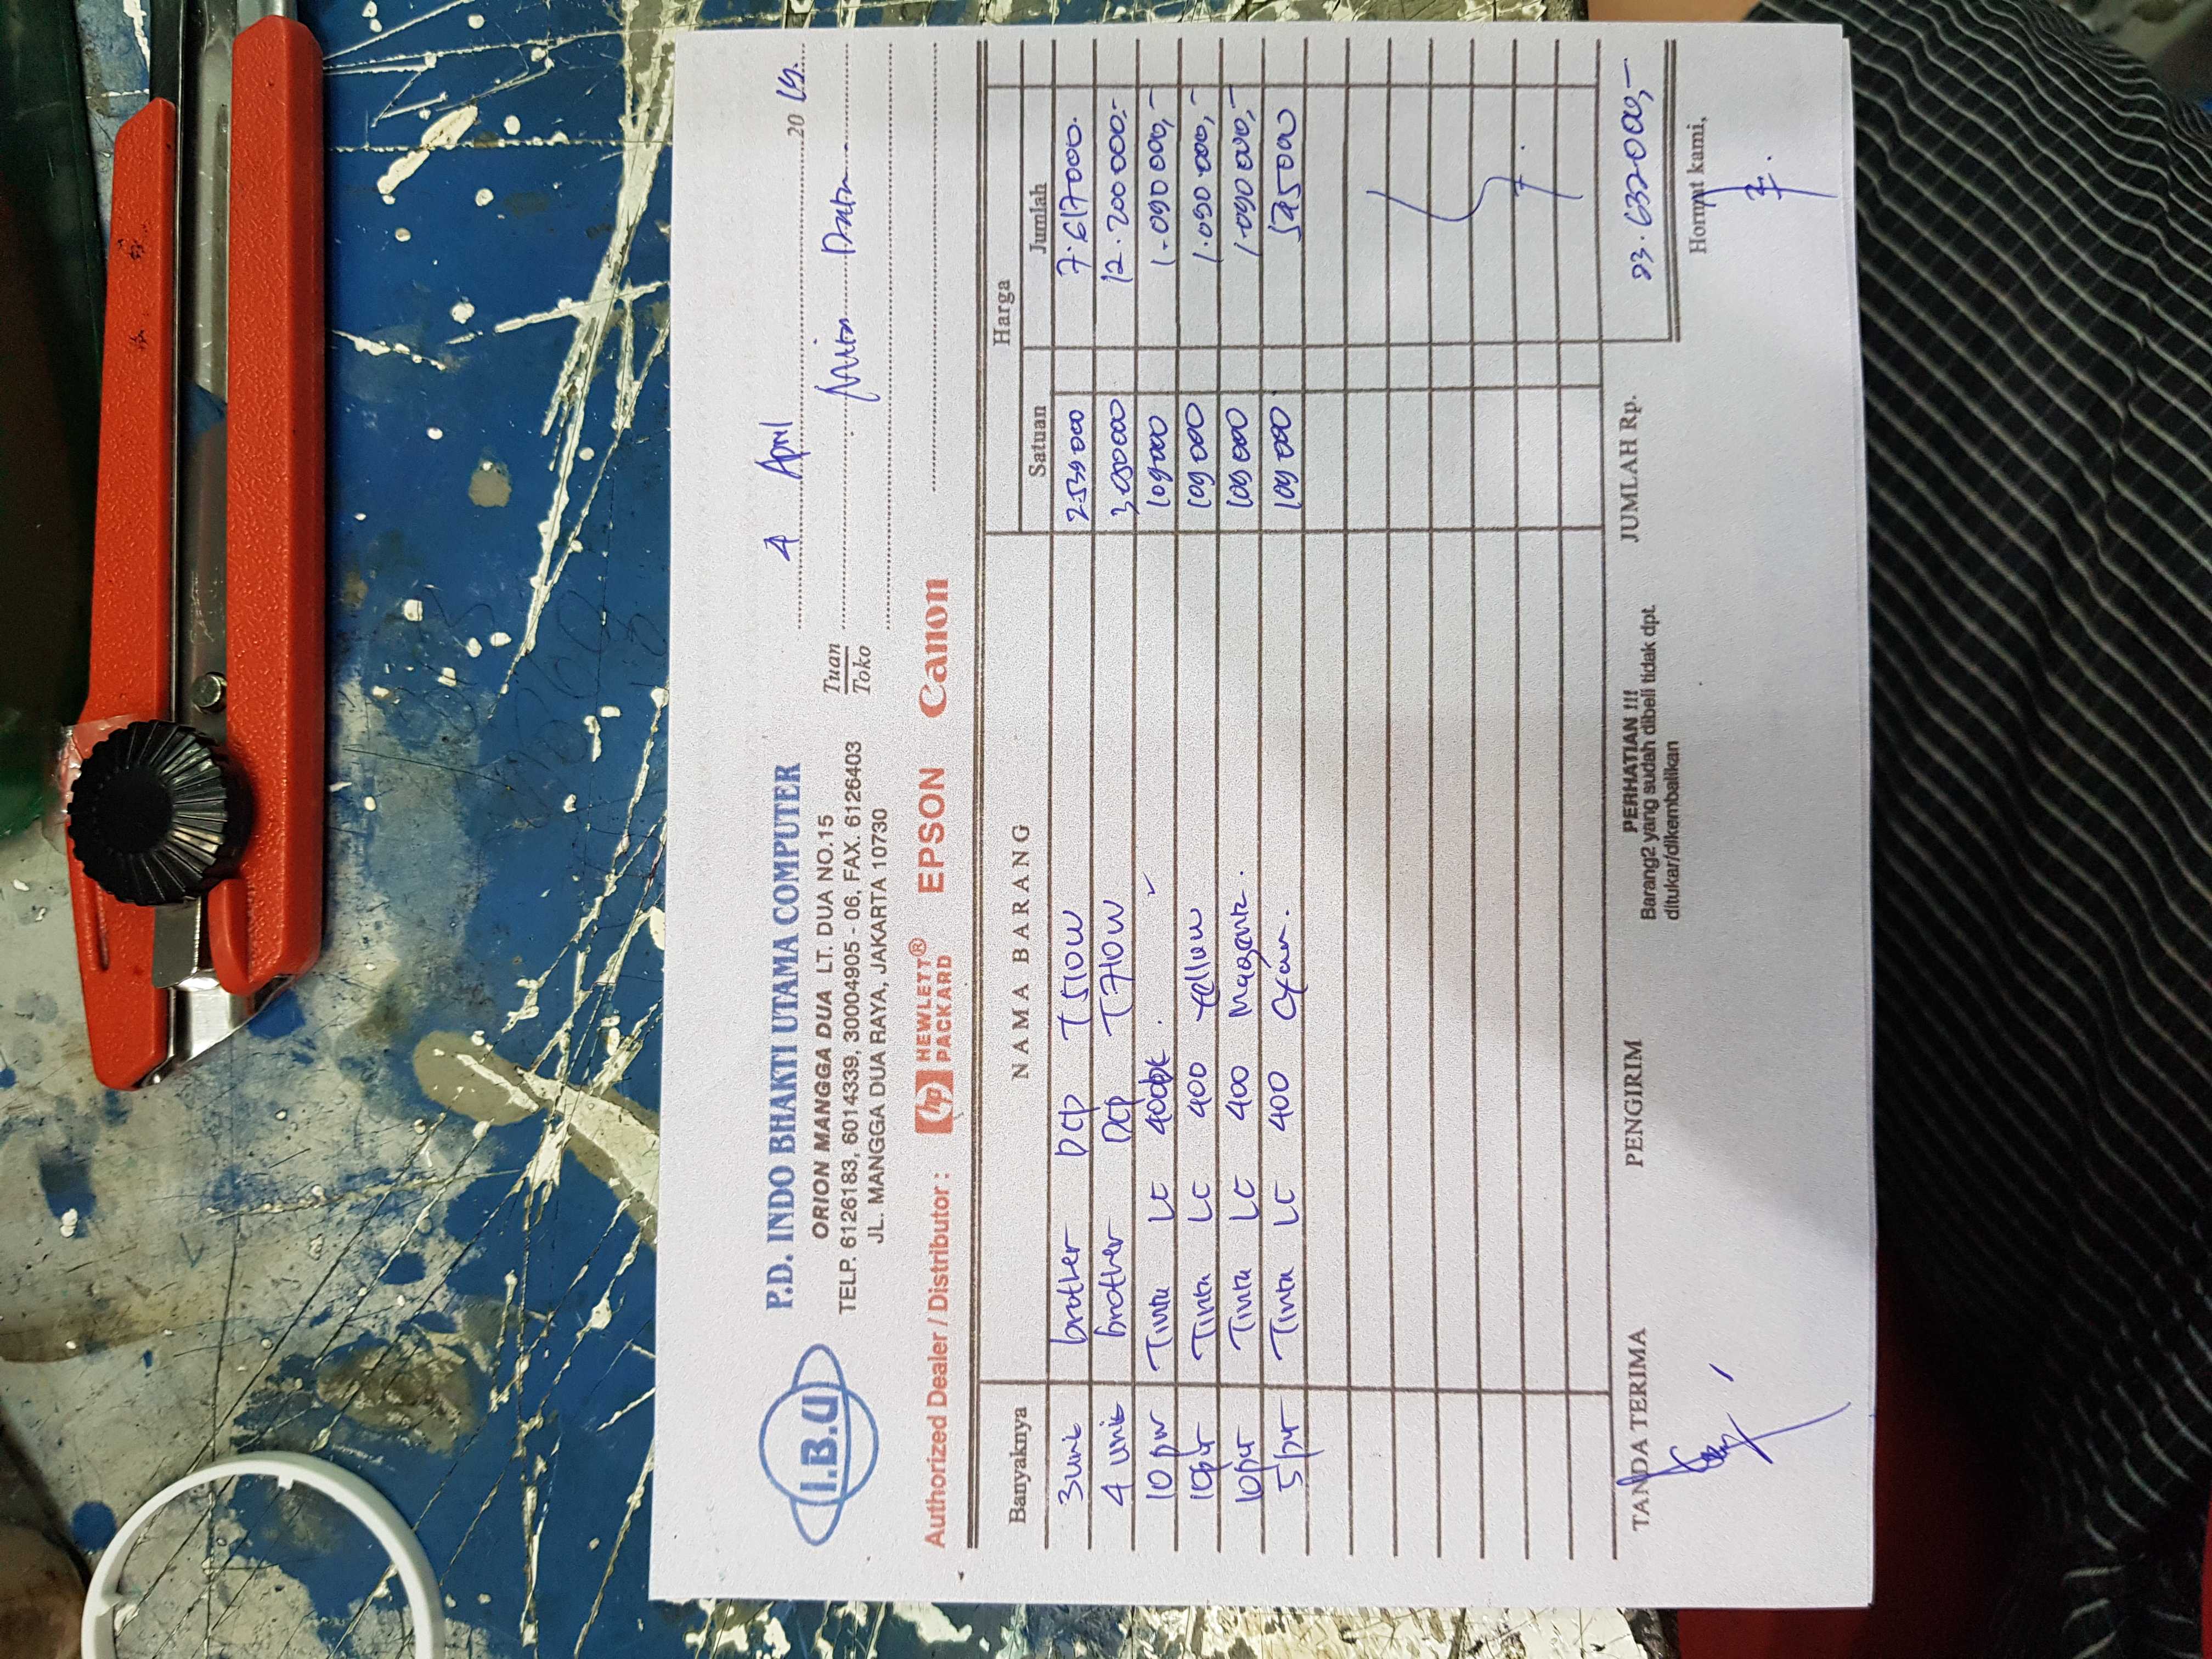 4 April 20 19.
P.D. INDO BHAKTI UTAMA COMPUTER
I.B.U
ORION MANGGA DUA LT. DUA NO.15
TELP. 6126183, 6014339, 30004905 - 06, FAX. 6126403
JL. MANGGA DUA RAYA, JAKARTA 10730
Tuan
Toko
Mitra Data
Authorized Dealer / Distributor : hp HEWLETT® PACKARD EPSON Canon
Banyaknya NAMA BARANG Harga
Satuan Jumlah
3 unit brother DCP T510W 2539000 7.617000.
4 unit brother DCP T710W 3,050000 12.200000,-
10 Tinta LC 400bk 109000 1.090000,-
10 Tinta LC 400 Yellow 109000 1.090000,-
10 Tinta LC 400 Magenta. 109000 1.090000,-
5 Tinta LC 400 Cyan. 109000 545000
TANDA TERIMA PENGIRIM PERHATIAN !!! JUMLAH Rp. 23.632000,-
Barang2 yang sudah dibeli tidak dpt.
ditukar/dikembalikan
Hormat kami,